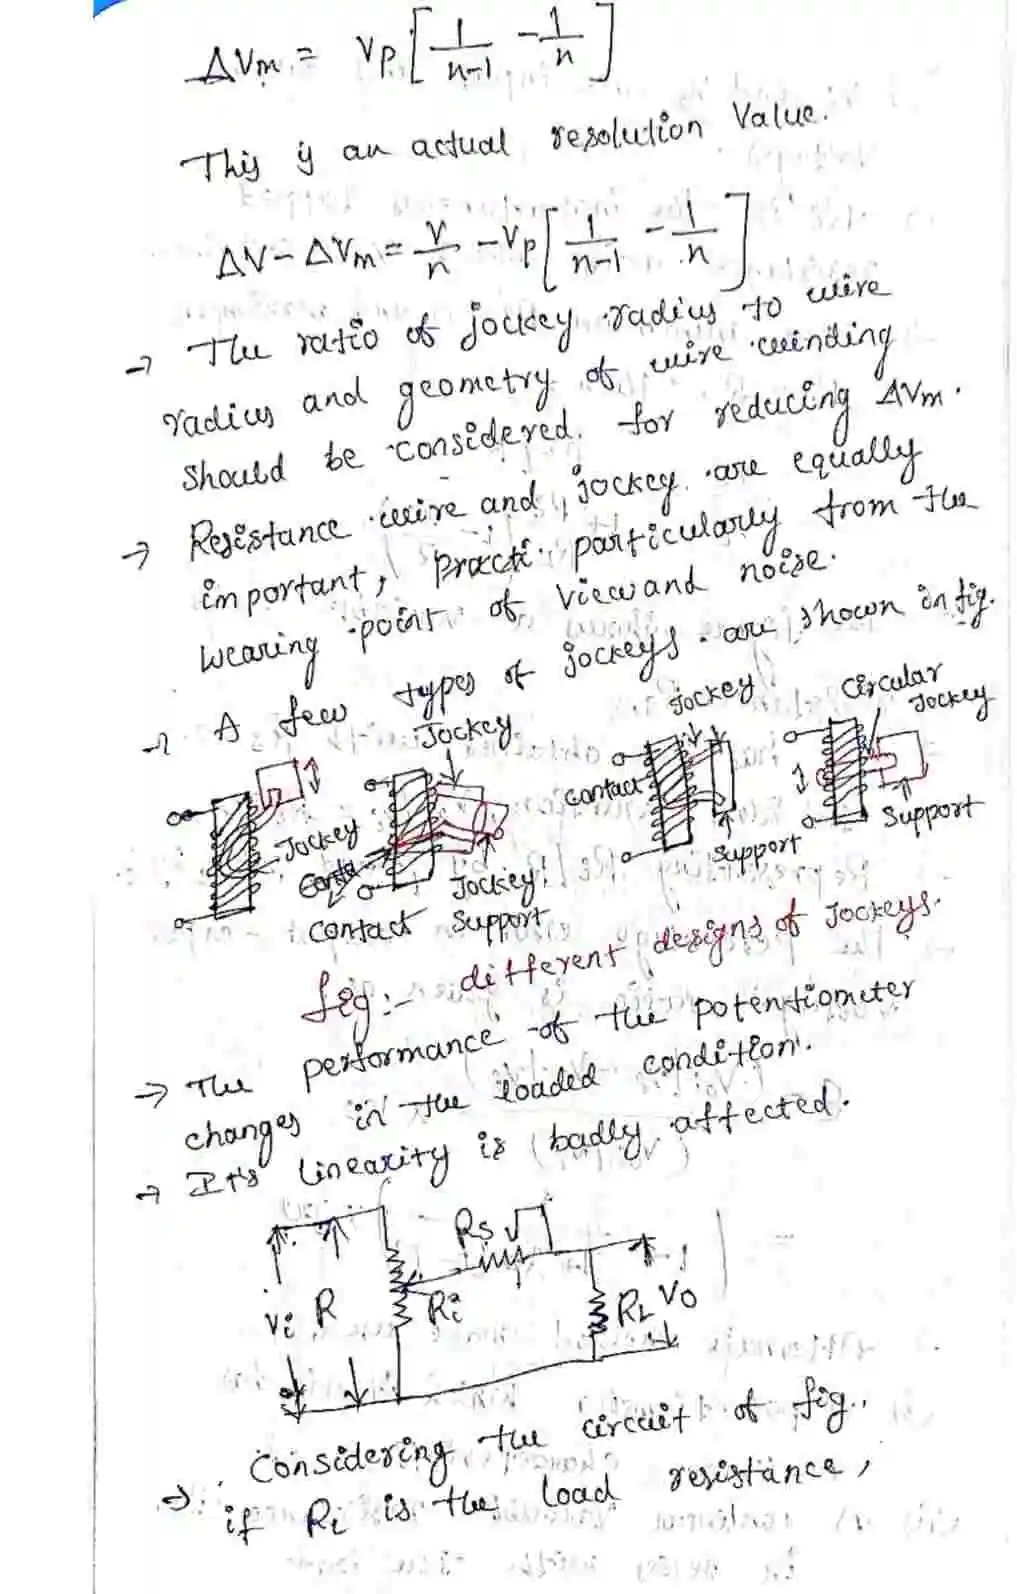 ΔVm = Vp [ 1/n-1 - 1/n ]
This is an actual resolution Value.
ΔV - ΔVm = V/n - Vp [ 1/n-1 - 1/n ]
→ The ratio of jockey radius to wire
radius and geometry of wire winding
should be considered. for reducing ΔVm.
→ Resistance wire and jockey are equally
important, Practi particularly from the
wearing point of view and noise.
→ A few types of jockeys are shown in fig.
Jockey Jockey Circular Jockey
Jockey Contact
Contact Jockey Support Support Support
fig:- different designs of Jockeys.
→ The performance of the potentiometer
changes in the loaded condition.
→ It's linearity is badly affected.
Rs
Vi R Ri RL Vo
→ Considering the circuit of fig.,
if RL is the load resistance,